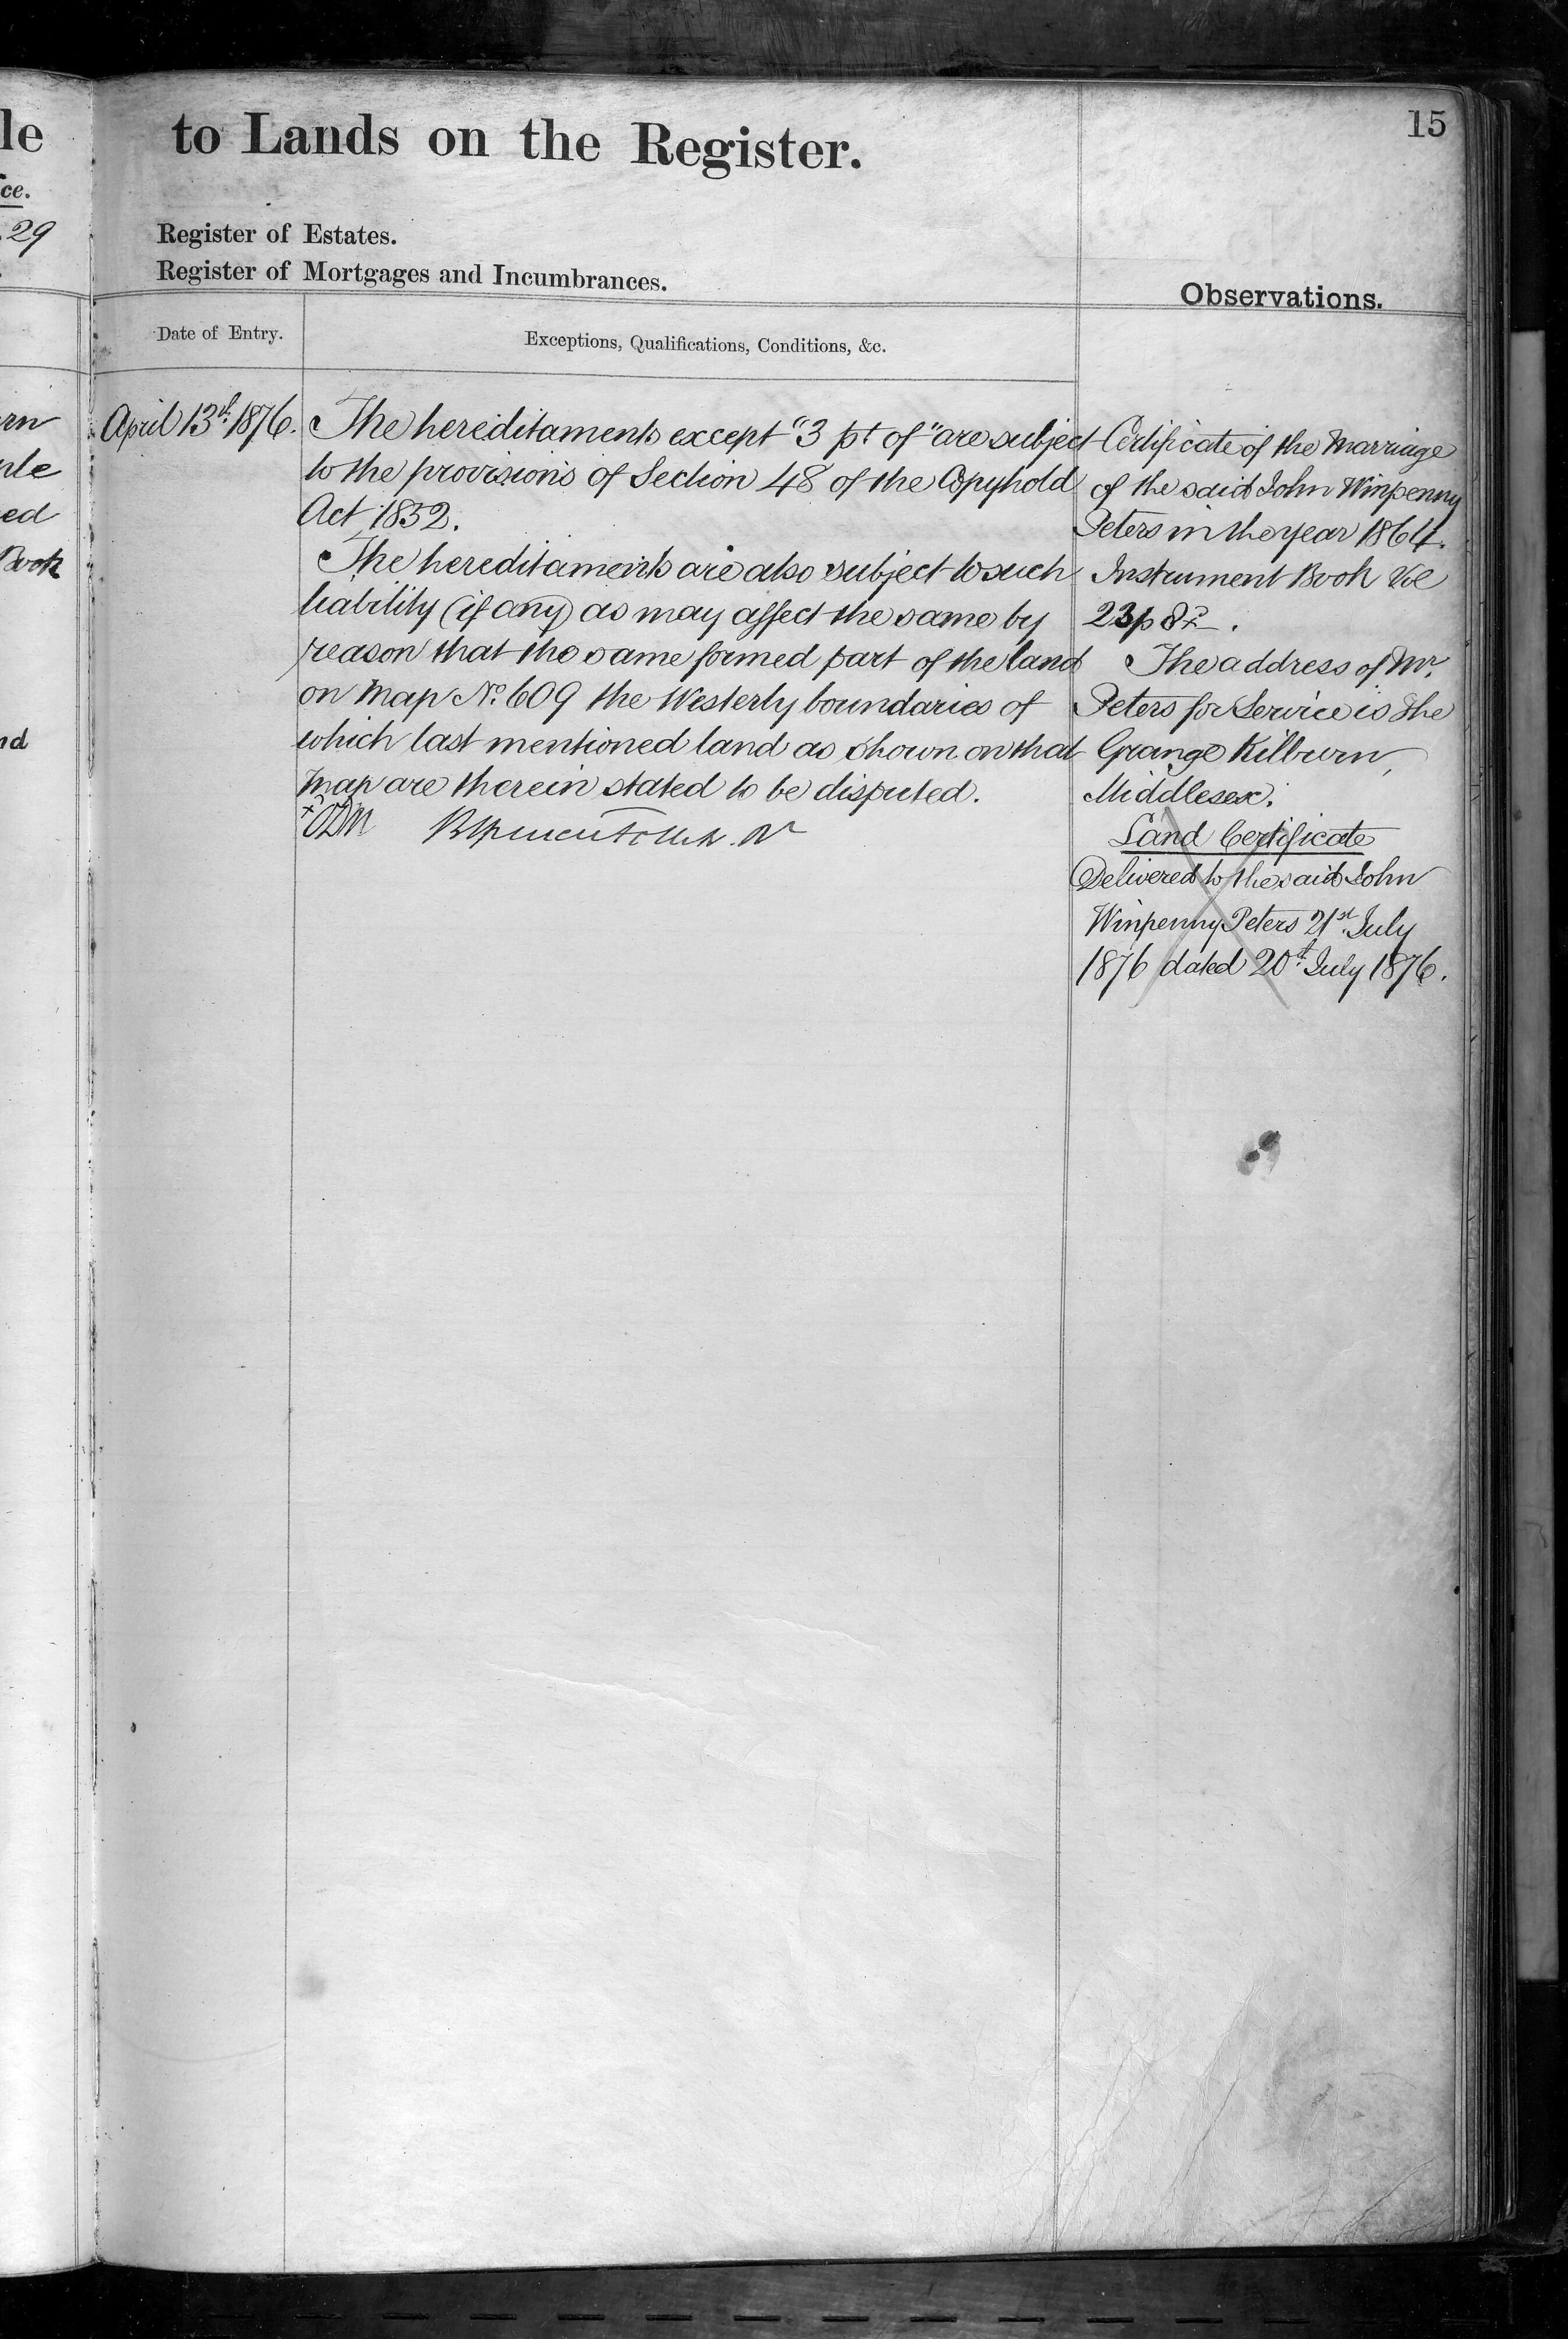 le
ce.
29
rn
ple
ed
Book
nd
15
to Lands on the Register.
Register of Estates.
Register of Mortgages and Incumbrances.
Observations.
Date of Entry.
Exceptions, Qualifications, Conditions, &c.
April 13th 1876.
The hereditaments except "3 pt of" are subject
to the provisions of Section 48 of the Copyhold
Act 1852.
The hereditaments are also subject to such
liability (if any) as may affect the same by
reason that the same formed part of the land
on Map No. 609 the Westerly boundaries of
which last mentioned land as shown on that
map are therein stated to be disputed.
Certificate of the Marriage
of the said John Winpenny
Peters in the year 1864.
Instrument Book Vol
23 p
The address of Mr.
Peters for Service is The
Grange Kilburn,
Middlesex.
Land Certificate
Delivered to the said John
Winpenny Peters 21st July
1876 dated 20th July 1876.